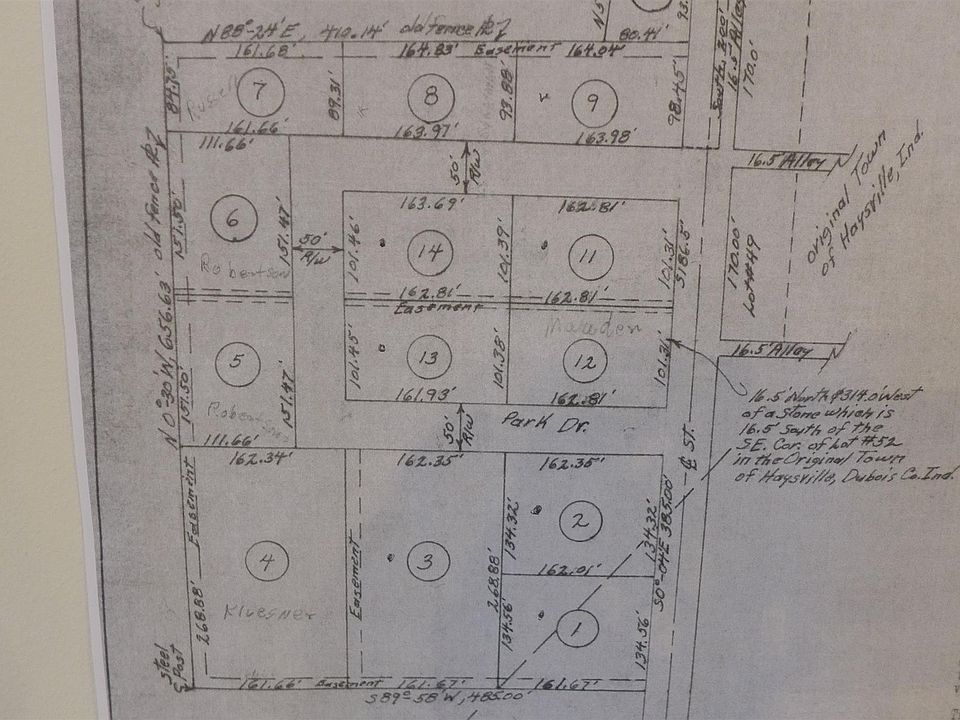 N 88°-24' E, 410.14' old fence
N5
93.
80.41'
161.68'
164.83'
Easement
164.04'
South. Beg.
16.5' Alley
170.0'
84.75'
7
89.31'
8
93.88'
9
98.45'
161.66'
163.97'
163.98'
111.66'
50'
R/W
16.5' Alley
original Town
of Haysville, Ind.
N 0°-30' W, 656.63' old fence
151.50'
6
151.47'
Robertson
50'
R/W
163.69'
162.81'
101.46'
14
101.39'
11
101.31'
S186.5'
170.00'
Lot #49
162.81'
162.81'
Easement
Marsden
151.50'
5
151.47'
101.45'
13
101.38'
12
101.31'
16.5' Alley
111.66'
161.93'
162.81'
50'
R/W
Park Dr.
16.5' North & 314.0' West
of a Stone which is
16.5' South of the
SE. Cor. of Lot #52
in the Original Town
of Haysville, Dubois Co. Ind.
162.34'
162.35'
162.35'
℄ ST.
Easement
134.32'
2
134.32'
S0°-04'E 385.00'
4
Easement
3
268.88'
162.01'
268.88'
Kluesner
134.56'
1
134.56'
steel
Post
161.66'
Easement
161.67'
161.67'
S 89°-58' W, 485.00'